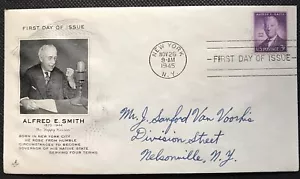 FIRST DAY OF ISSUE
ALFRED E. SMITH
1873-1944
The Happy Warrior
BORN IN NEW YORK CITY
HE ROSE FROM HUMBLE
CIRCUMSTANCES TO BECOME
GOVERNOR OF HIS NATIVE STATE
SERVING FOUR TERMS
NEW YORK
NOV 26
9-AM
1945
N.Y.
FIRST DAY OF ISSUE
ALFRED E. SMITH
Mr. J. Sanford Van Voorhis
Division Street
Nelsonville, N.Y.